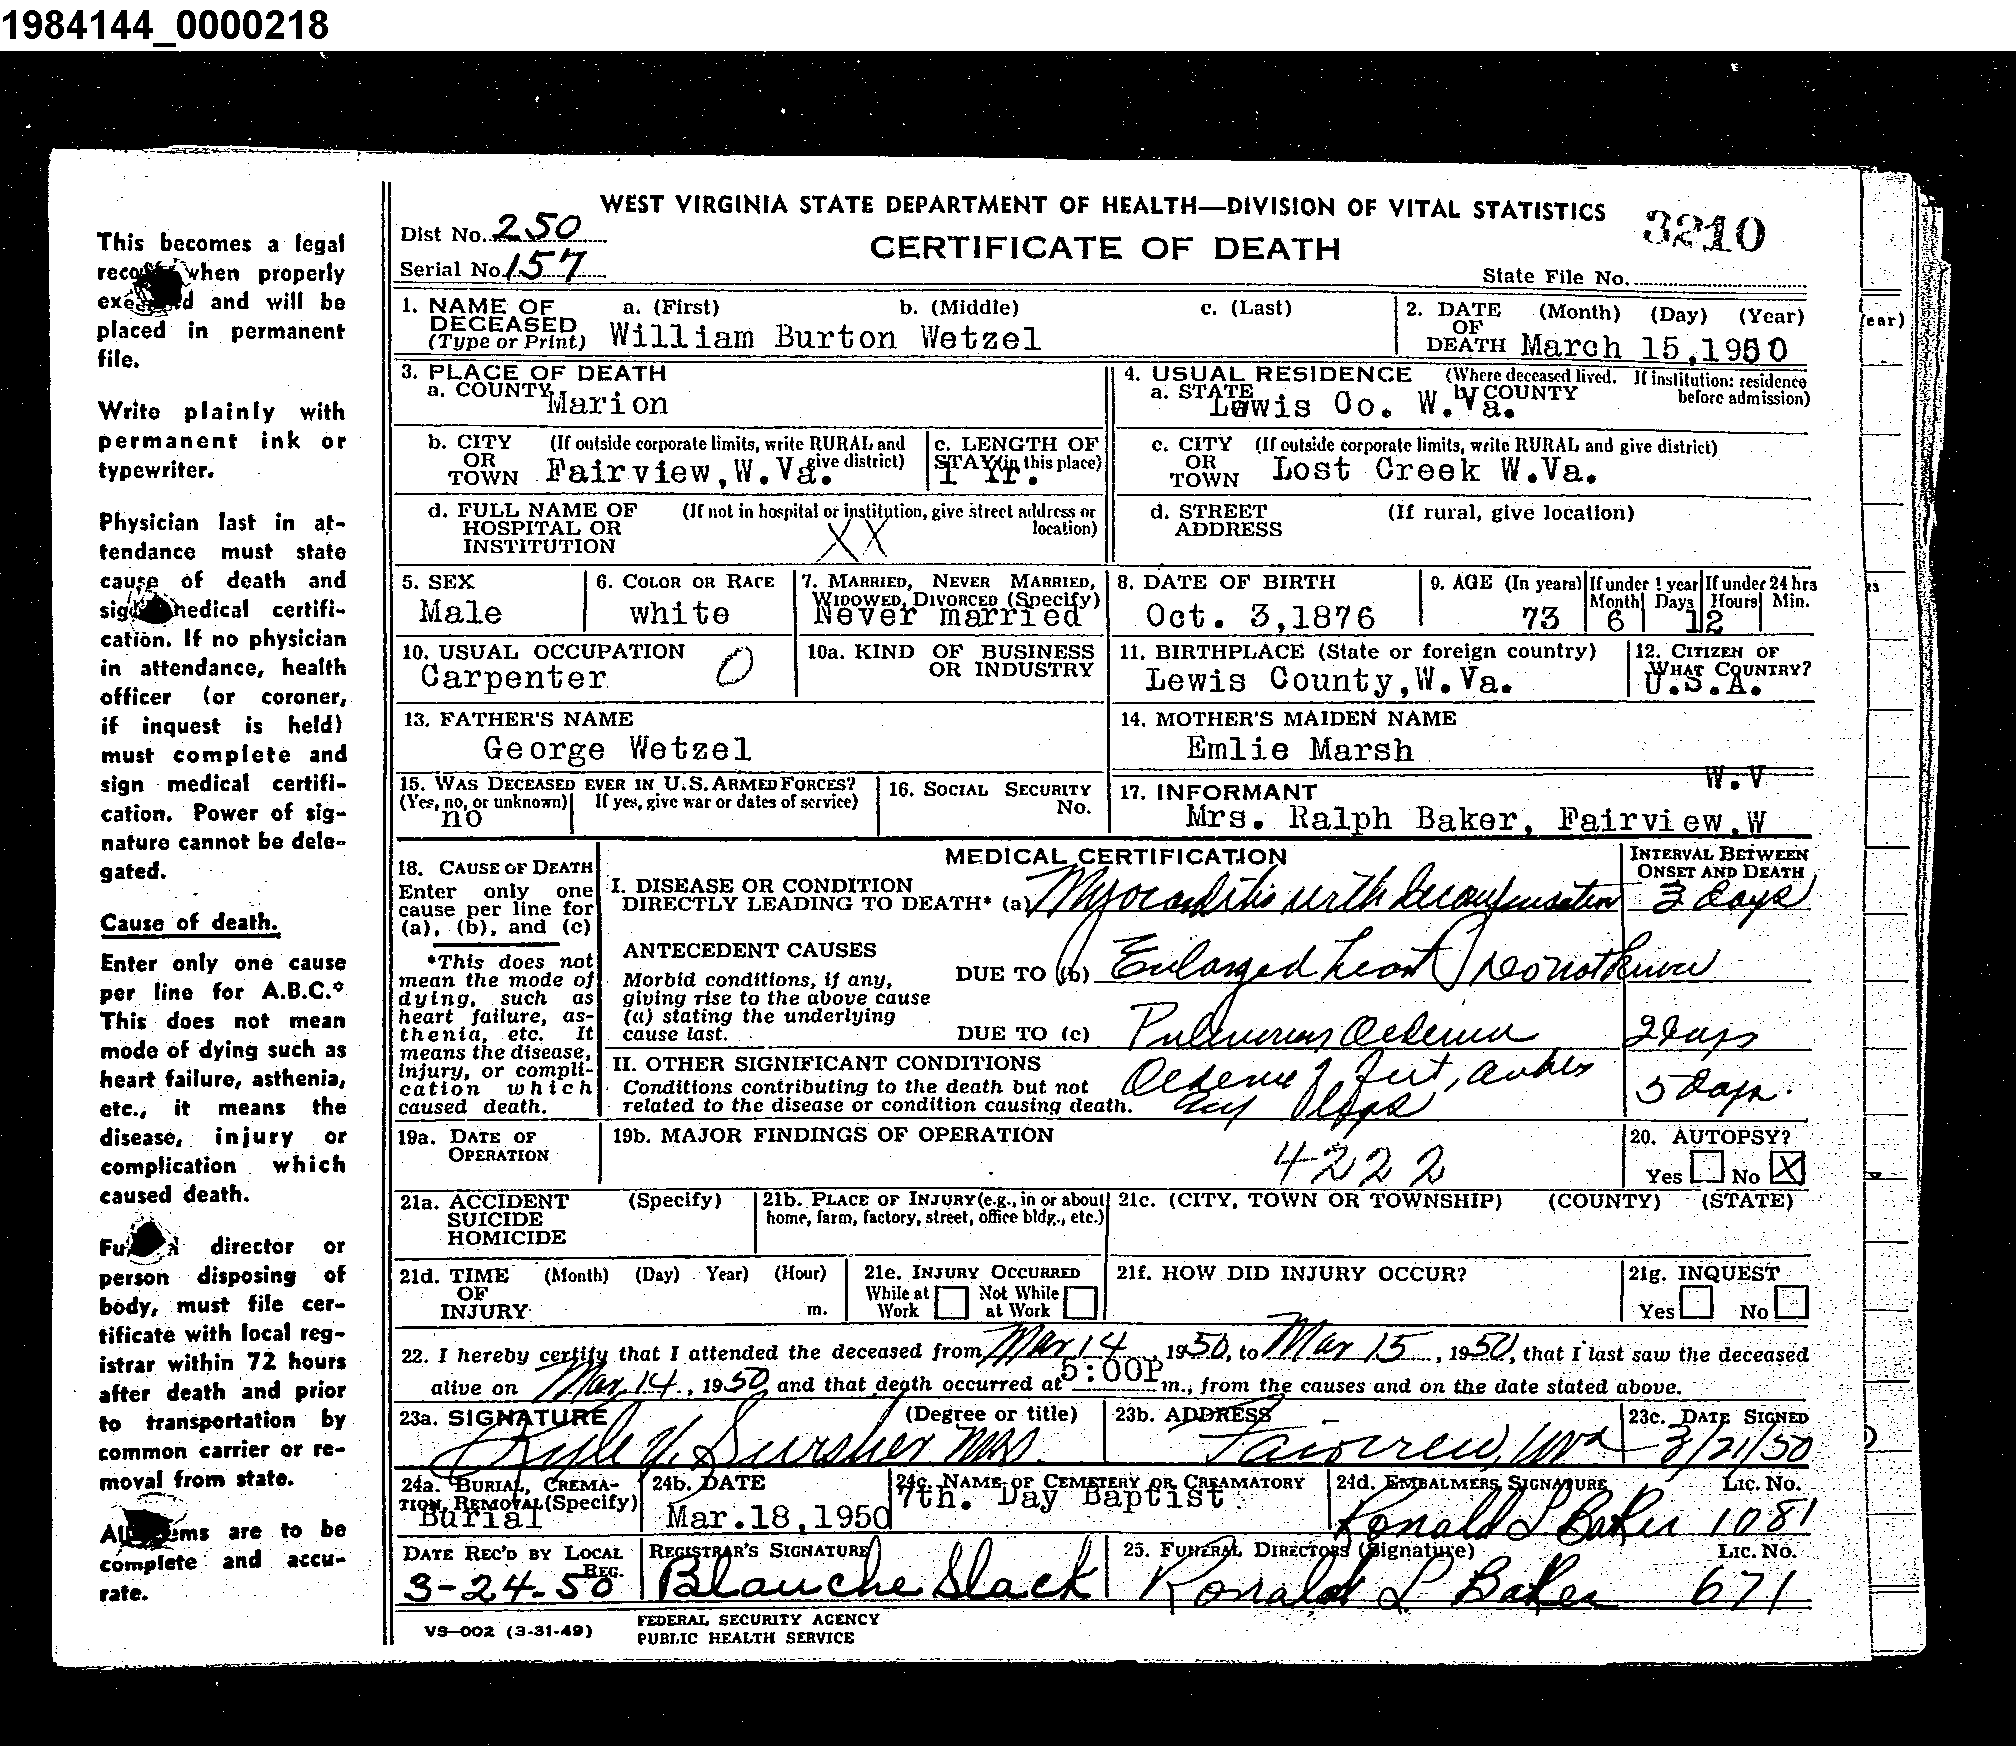 1984144_0000218
WEST VIRGINIA STATE DEPARTMENT OF HEALTH—DIVISION OF VITAL STATISTICS
3210
Dist No. 250
CERTIFICATE OF DEATH
Serial No. 157
State File No.
1. NAME OF DECEASED (Type or Print) a. (First) b. (Middle) c. (Last)
William Burton Wetzel
2. DATE OF DEATH (Month) (Day) (Year)
March 15,1950
3. PLACE OF DEATH
a. COUNTY Marion
4. USUAL RESIDENCE (Where deceased lived. If institution: residence before admission)
a. STATE b. COUNTY
Lewis Co. W.Va.
b. CITY OR TOWN (If outside corporate limits, write RURAL and give district)
Fairview,W.Va.
c. LENGTH OF STAY (in this place)
1 Yr.
c. CITY OR TOWN (If outside corporate limits, write RURAL and give district)
Lost Creek W.Va.
d. FULL NAME OF HOSPITAL OR INSTITUTION (If not in hospital or institution, give street address or location)
XX
d. STREET ADDRESS (If rural, give location)
5. SEX
Male
6. COLOR OR RACE
white
7. MARRIED, NEVER MARRIED, WIDOWED, DIVORCED (Specify)
Never married
8. DATE OF BIRTH
Oct. 3,1876
9. AGE (In years) If under 1 year Month Days If under 24 hrs Hours Min.
73 6 12
10. USUAL OCCUPATION
Carpenter 0
10a. KIND OF BUSINESS OR INDUSTRY
11. BIRTHPLACE (State or foreign country)
Lewis County,W.Va.
12. CITIZEN OF WHAT COUNTRY?
U.S.A.
13. FATHER'S NAME
George Wetzel
14. MOTHER'S MAIDEN NAME
Emlie Marsh
15. WAS DECEASED EVER IN U.S. ARMED FORCES?
(Yes, no, or unknown) If yes, give war or dates of service)
no
16. SOCIAL SECURITY No.
17. INFORMANT
W.V
Mrs. Ralph Baker, Fairview,W
18. CAUSE OF DEATH
Enter only one cause per line for (a), (b), and (c)
*This does not mean the mode of dying, such as heart failure, asthenia, etc. It means the disease, injury, or complication which caused death.
MEDICAL CERTIFICATION
INTERVAL BETWEEN ONSET AND DEATH
I. DISEASE OR CONDITION DIRECTLY LEADING TO DEATH* (a) Myocarditis with decompensation 3 days
ANTECEDENT CAUSES
Morbid conditions, if any, giving rise to the above cause (a) stating the underlying cause last.
DUE TO (b) Enlarged heart Do not know
DUE TO (c) Pulmonary Oedema 2 days
II. OTHER SIGNIFICANT CONDITIONS
Conditions contributing to the death but not related to the disease or condition causing death.
Oedema of feet, ankles
5 days.
19a. DATE OF OPERATION
19b. MAJOR FINDINGS OF OPERATION
4222
20. AUTOPSY?
Yes No X
21a. ACCIDENT SUICIDE HOMICIDE (Specify)
21b. PLACE OF INJURY (e.g., in or about home, farm, factory, street, office bldg., etc.)
21c. (CITY, TOWN OR TOWNSHIP) (COUNTY) (STATE)
21d. TIME OF INJURY (Month) (Day) Year) (Hour) m.
21e. INJURY OCCURRED
While at Work Not While at Work
21f. HOW DID INJURY OCCUR?
21g. INQUEST
Yes No
22. I hereby certify that I attended the deceased from Mar 14, 1950, to Mar 15, 1950, that I last saw the deceased
alive on Mar 14, 1950 and that death occurred at 5:00P m., from the causes and on the date stated above.
23a. SIGNATURE (Degree or title)
23b. ADDRESS
Fairview, WVa
23c. DATE SIGNED
3/21/50
24a. BURIAL, CREMATION, REMOVAL (Specify)
Burial
24b. DATE
Mar.18,1950
24c. NAME OF CEMETERY OR CREAMATORY
7th. Day Baptist
24d. EMBALMERS SIGNATURE LIC. NO.
Ronald L Baker 1081
DATE REC'D BY LOCAL REG.
3-24-50
REGISTRAR'S SIGNATURE
Blanche Slack
25. FUNERAL DIRECTORS (Signature) LIC. NO.
Ronald L Baker 671
VS—002 (3-31-49)
FEDERAL SECURITY AGENCY
PUBLIC HEALTH SERVICE
This becomes a legal
when properly
and will be
placed in permanent
file.
Write plainly with
permanent ink or
typewriter.
Physician last in at-
tendance must state
cause of death and
medical certifi-
cation. If no physician
in attendance, health
officer (or coroner,
if inquest is held)
must complete and
sign medical certifi-
cation. Power of sig-
nature cannot be dele-
gated.
Cause of death.
Enter only one cause
per line for A.B.C.*
This does not mean
mode of dying such as
heart failure, asthenia,
etc., it means the
disease, injury or
complication which
caused death.
director or
person disposing of
body, must file cer-
tificate with local reg-
istrar within 72 hours
after death and prior
to transportation by
common carrier or re-
moval from state.
are to be
complete and accu-
rate.